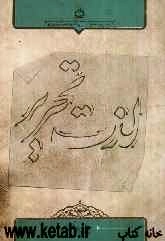 لذت تحریر
www.ketab.ir
خانه کتاب